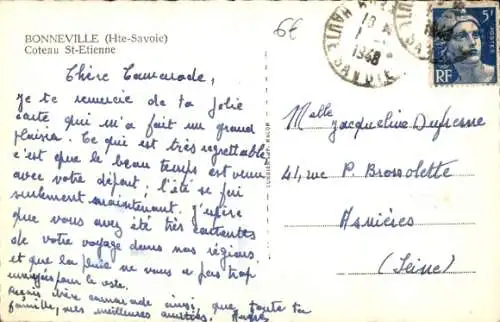 BONNEVILLE (Hte-Savoie)
Coteau St-Etienne
6€
HAUTE SAVOIE
1948
5F
POSTES
RF
Chère Camarade,
Je te remercie de ta jolie
carte qui m'a fait un grand
plaisir. Ce qui est très regrettable
c'est que le beau temps est venu
avec votre départ ; l'été se fui
seulement maintenant. J'espère
que vous avez été très contentes
de votre voyage dans nos régions
et que la pluie ne vous a pas trop
ennuyés pour le reste.
Reçois chère camarade ainsi que toute ta
famille, mes meilleures amitiés.
Melle Jacqueline Dufresne
41, rue P. Brossolette
Asnières
(Seine)